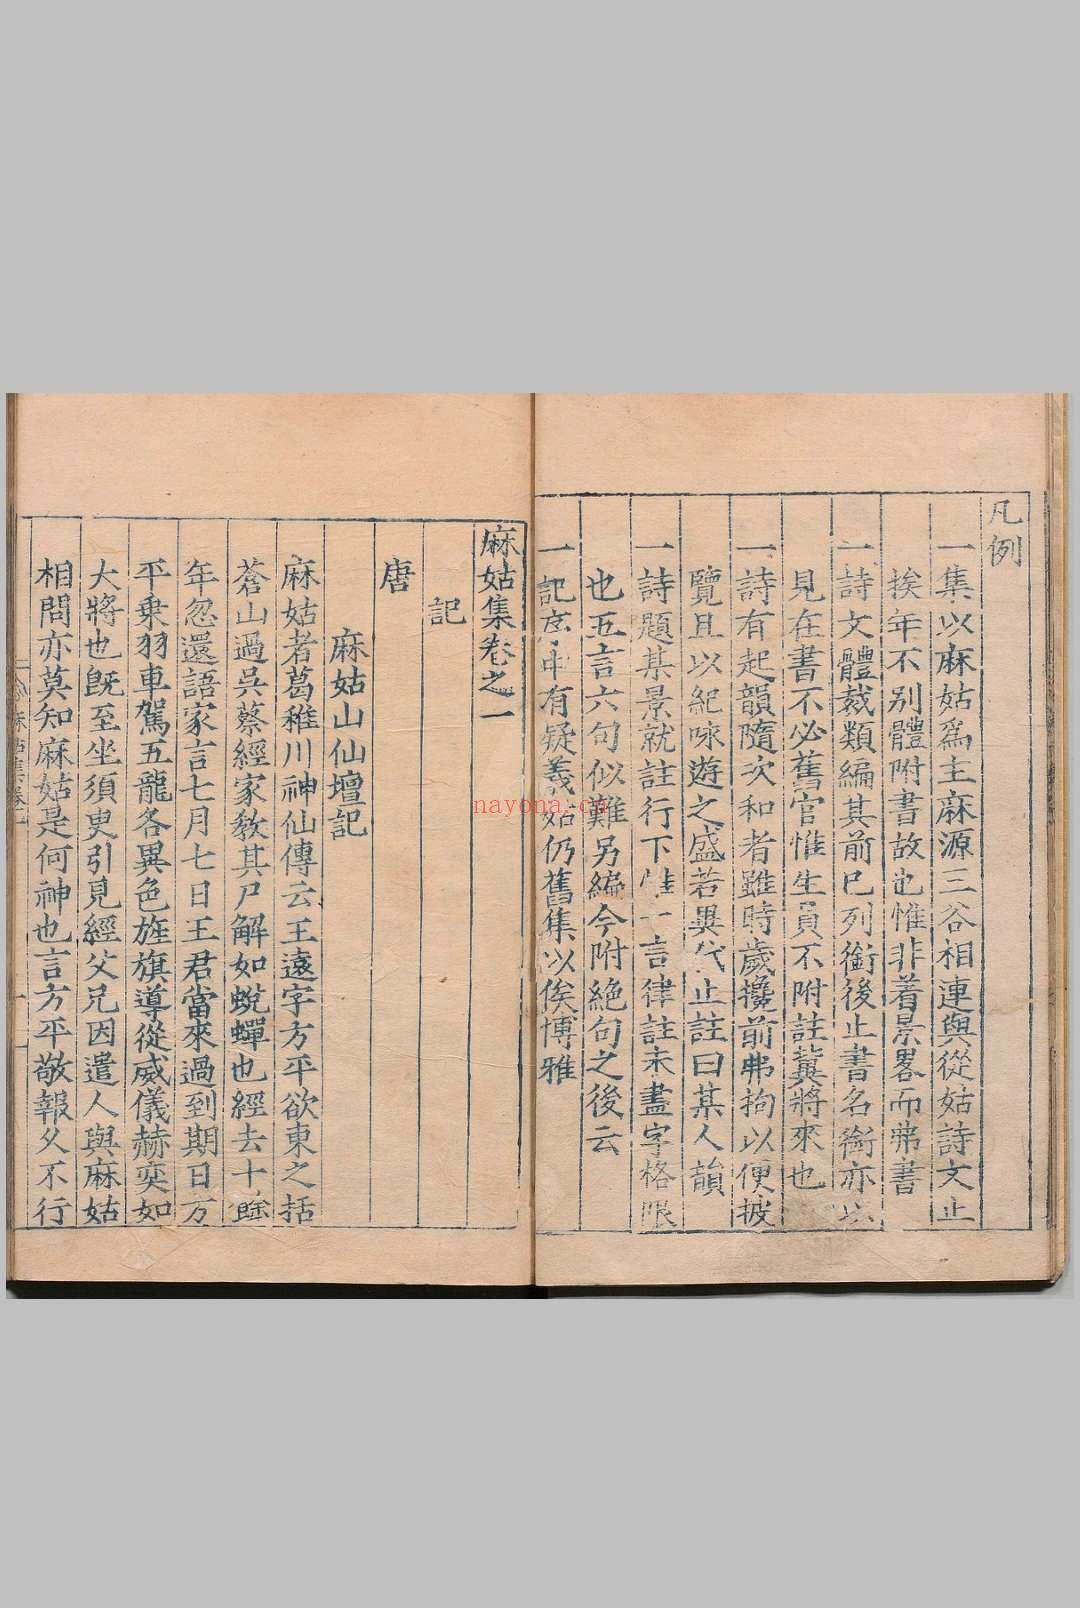 凡例
一集以麻姑爲主麻源三谷相連與從姑詩文止
挨年不别體附書故也惟非着景畧而弗書
一詩文體裁類編其前已列銜後止書名銜亦以
見在書不必舊官惟生員不附註冀將來也
一詩有起韻隨次和者雖時歲攙前弗拘以便披
覽且以紀咏遊之盛若異代止註曰某人韻
一詩題某景就註行下惟一言律註未盡字格限
也五言六句似難另編今附絶句之後云
一記序中有疑義姑仍舊集以俟博雅
麻姑集卷之一
記
唐
麻姑山仙壇記
麻姑者葛稚川神仙傳云王遠字方平欲東之括
蒼山過吳蔡經家敎其尸解如蛻蟬也經去十餘
年忽還語家言七月七日王君當來過到期日方
平乗羽車駕五龍各異色旌旗導從威儀赫奕如
大將也旣至坐須臾引見經父兄因遣人與麻姑
相問亦莫知麻姑是何神也言方平敬報乆不行
麻姑集卷一
nayona.cn